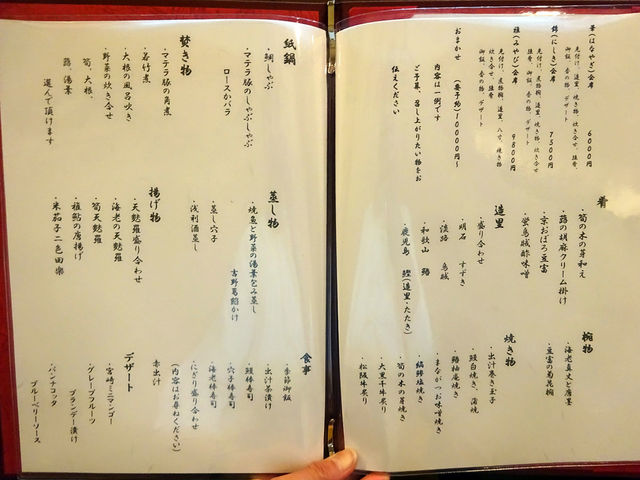 華(はなやぎ)会席 6000円
先付け、造里、焼き物、炊き合せ、強肴、
御飯、香の物、デザート
錦(にしき)会席 7500円
先付け、煮物椀、造里、焼き物、炊き合せ、
強肴、御飯、香の物、デザート
雅(みやび)会席 9800円
先付け、煮物椀、造里、八寸、焼き物
炊き合せ、強肴
御飯、香の物、デザート
おまかせ (要予約)10000円~
内容は一例です
ご予算、召し上がりたい物をお
伝えください
肴
・筍の木の芽和え
・蕗の胡麻クリーム掛け
・京おぼろ豆富
・蛍烏賊酢味噌
造里
・盛り合わせ
・明石 すずき
・淡路 烏賊
・和歌山
・鹿児島 鰹(造里・たたき)
椀物
・海老真丈と唐墨
・豆富の菊花椀
焼き物
・出汁巻き玉子
・鰻白焼き、蒲焼
・鰆柚庵焼き
・まながつお味噌焼き
・縞鯵塩焼き
・筍の木の芽焼き
・大黒千牛炙り
・松阪牛炙り
紙鍋
・鯛しゃぶ
・マテラ豚のしゃぶしゃぶ
ロースかバラ
焚き物
・マテラ豚の角煮
・若竹煮
・大根の風呂吹き
・野菜の炊き合せ
筍、大根、
蕗、湯葉
選んで頂けます
蒸し物
・焼魚と野菜の湯葉包み蒸し
吉野葛餡かけ
・蒸し穴子
・浅利酒蒸し
揚げ物
・天麩羅盛り合わせ
・海老の天麩羅
・筍天麩羅
・稚鮎の唐揚げ
・米茄子二色田楽
食事
・季節御飯
・出汁茶漬け
・鰻棒寿司
・穴子棒寿司
・海老棒寿司
・にぎり盛り合わせ
(内容はお尋ねください)
赤出汁
デザート
・宮崎ミニマンゴー
・グレープフルーツ
ブランデー漬け
・パンナコッタ
ブルーベリーソース